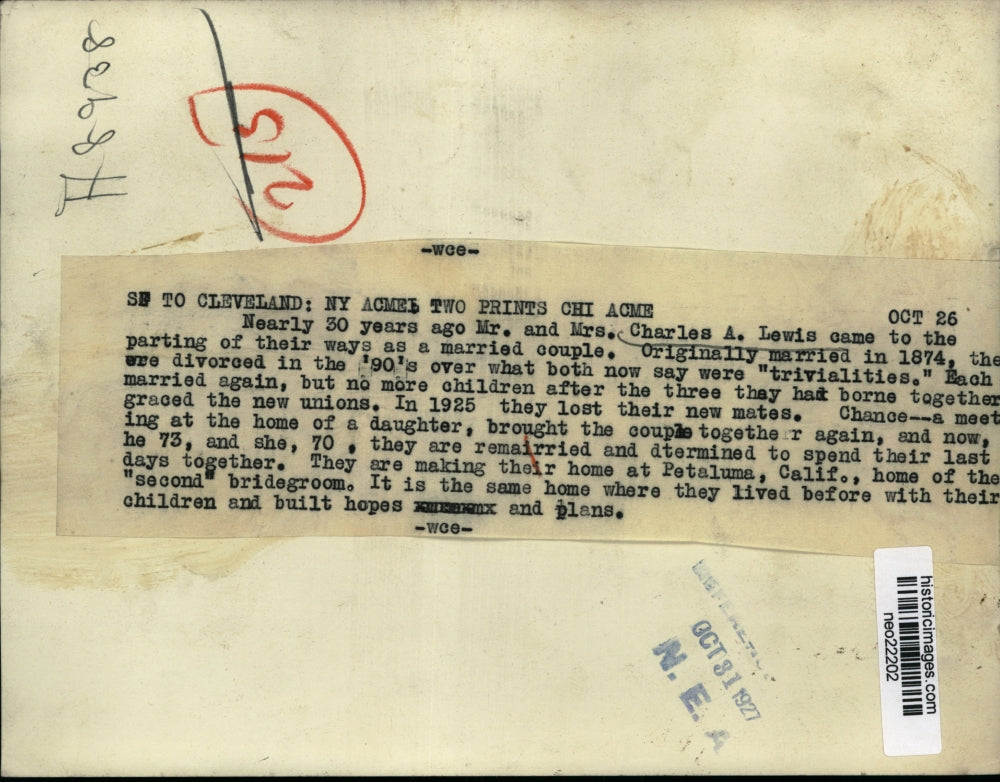 H8938
213
-wce-
SF TO CLEVELAND: NY ACME TWO PRINTS CHI ACME OCT 26
Nearly 30 years ago Mr. and Mrs. Charles A. Lewis came to the
parting of their ways as a married couple. Originally married in 1874, the
were divorced in the '90's over what both now say were "trivialities." Each
married again, but no more children after the three they had borne together
graced the new unions. In 1925 they lost their new mates. Chance--a meet
ing at the home of a daughter, brought the couple together again, and now,
he 73, and she, 70 , they are remairried and dtermined to spend their last
days together. They are making their home at Petaluma, Calif., home of the
"second" bridegroom. It is the same home where they lived before with their
children and built hopes and plans.
-wce-
OCT 31 1927
N. E. A
historicimages.com
neo22202